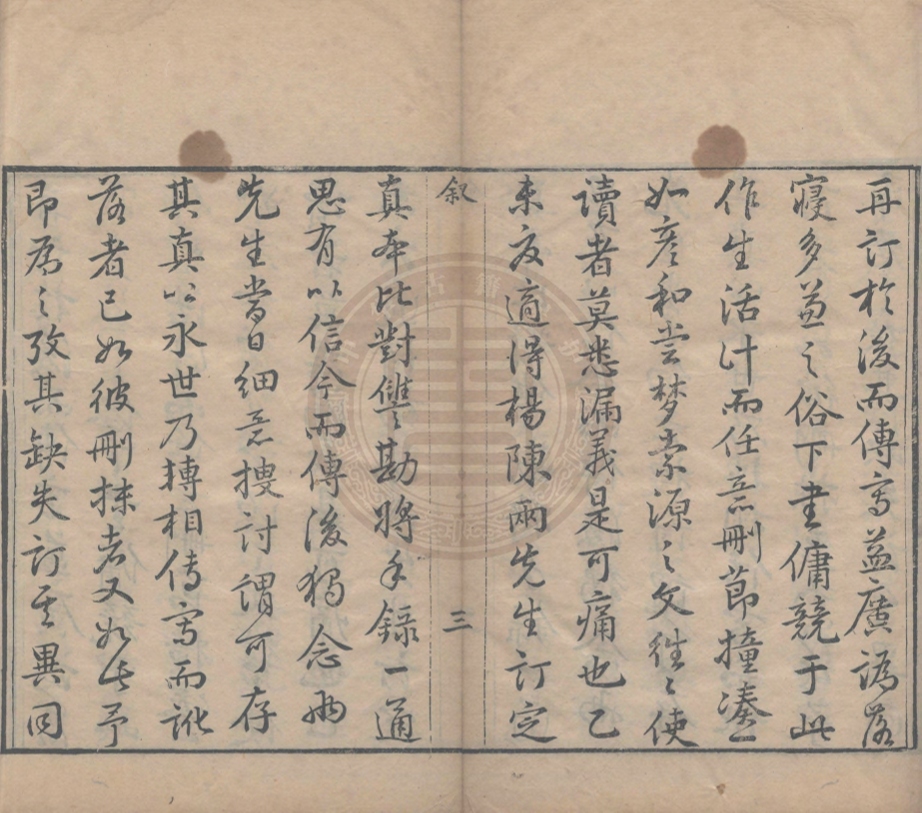 再訂於後而傳寫益廣譌落
寖多蓋之俗下書傭競于此
作生活计而任意刪節撞湊一
如彦和尝梦索源之文徃〻使
讀者莫悉漏義是可痛也乙
未夜適得楊陳兩先生訂定
叙
三
真本比對讐勘將手錄一通
思有以信今而傳後獨念兩
先生當日细意搜討谓可存
其真以永世乃轉相传寫而訛
落者已如彼刪抹者又如此予
即為之攷其缺失訂其異同